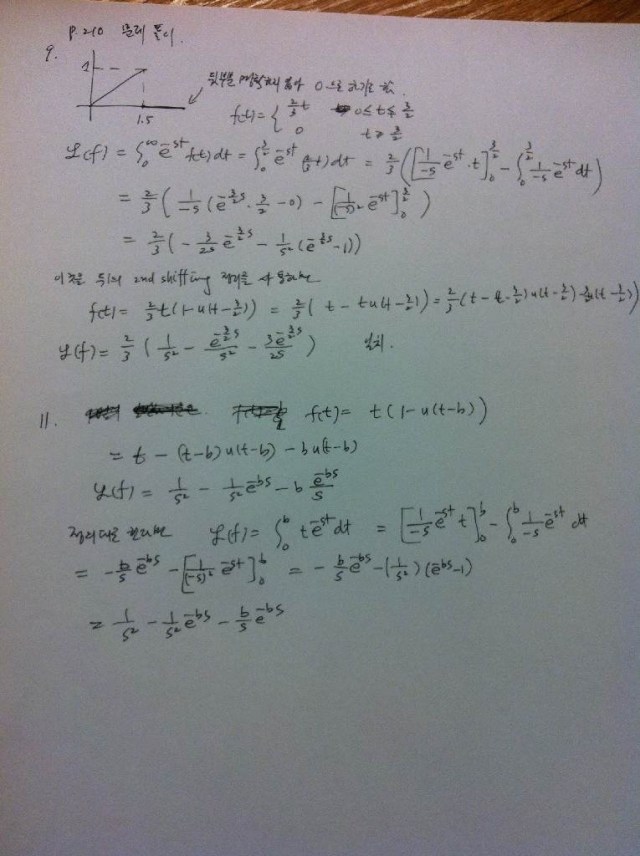 p.210 문제 풀이.
9.
1
1.5
뒷부분 명확하지 않아 0으로 하기로 함.
f(t) = { 2/3 t   0 ≤ t ≤ 3/2
0   t ≥ 3/2
ℒ(f) = ∫₀^∞ e^{-st} f(t) dt = ∫₀^{3/2} e^{-st} (2/3 t) dt = 2/3 ( [1/-s e^{-st} · t]₀^{3/2} - ∫₀^{3/2} 1/-s e^{-st} dt )
= 2/3 ( 1/-s (e^{-3/2 s} · 3/2 - 0) - [1/(-s)² e^{-st}]₀^{3/2} )
= 2/3 ( - 3/2s e^{-3/2 s} - 1/s² (e^{-3/2 s} - 1) )
이것을 뒤의 2nd shifting 정리를 사용하면
f(t) = 2/3 t (1 - u(t - 3/2)) = 2/3 ( t - t u(t - 3/2) ) = 2/3 ( t - (t - 3/2) u(t - 3/2) - 3/2 u(t - 3/2) )
ℒ(f) = 2/3 ( 1/s² - e^{-3/2 s}/s² - 3e^{-3/2 s}/2s )   일치.
11. f(t) = t (1 - u(t-b))
= t - (t-b) u(t-b) - b u(t-b)
ℒ(f) = 1/s² - 1/s² e^{-bs} - b e^{-bs}/s
정의대로 한다면   ℒ(f) = ∫₀^b t e^{-st} dt = [1/-s e^{-st} t]₀^b - ∫₀^b 1/-s e^{-st} dt
= - b/s e^{-bs} - [1/(-s)² e^{-st}]₀^b = - b/s e^{-bs} - (1/s²)(e^{-bs} - 1)
= 1/s² - 1/s² e^{-bs} - b/s e^{-bs}